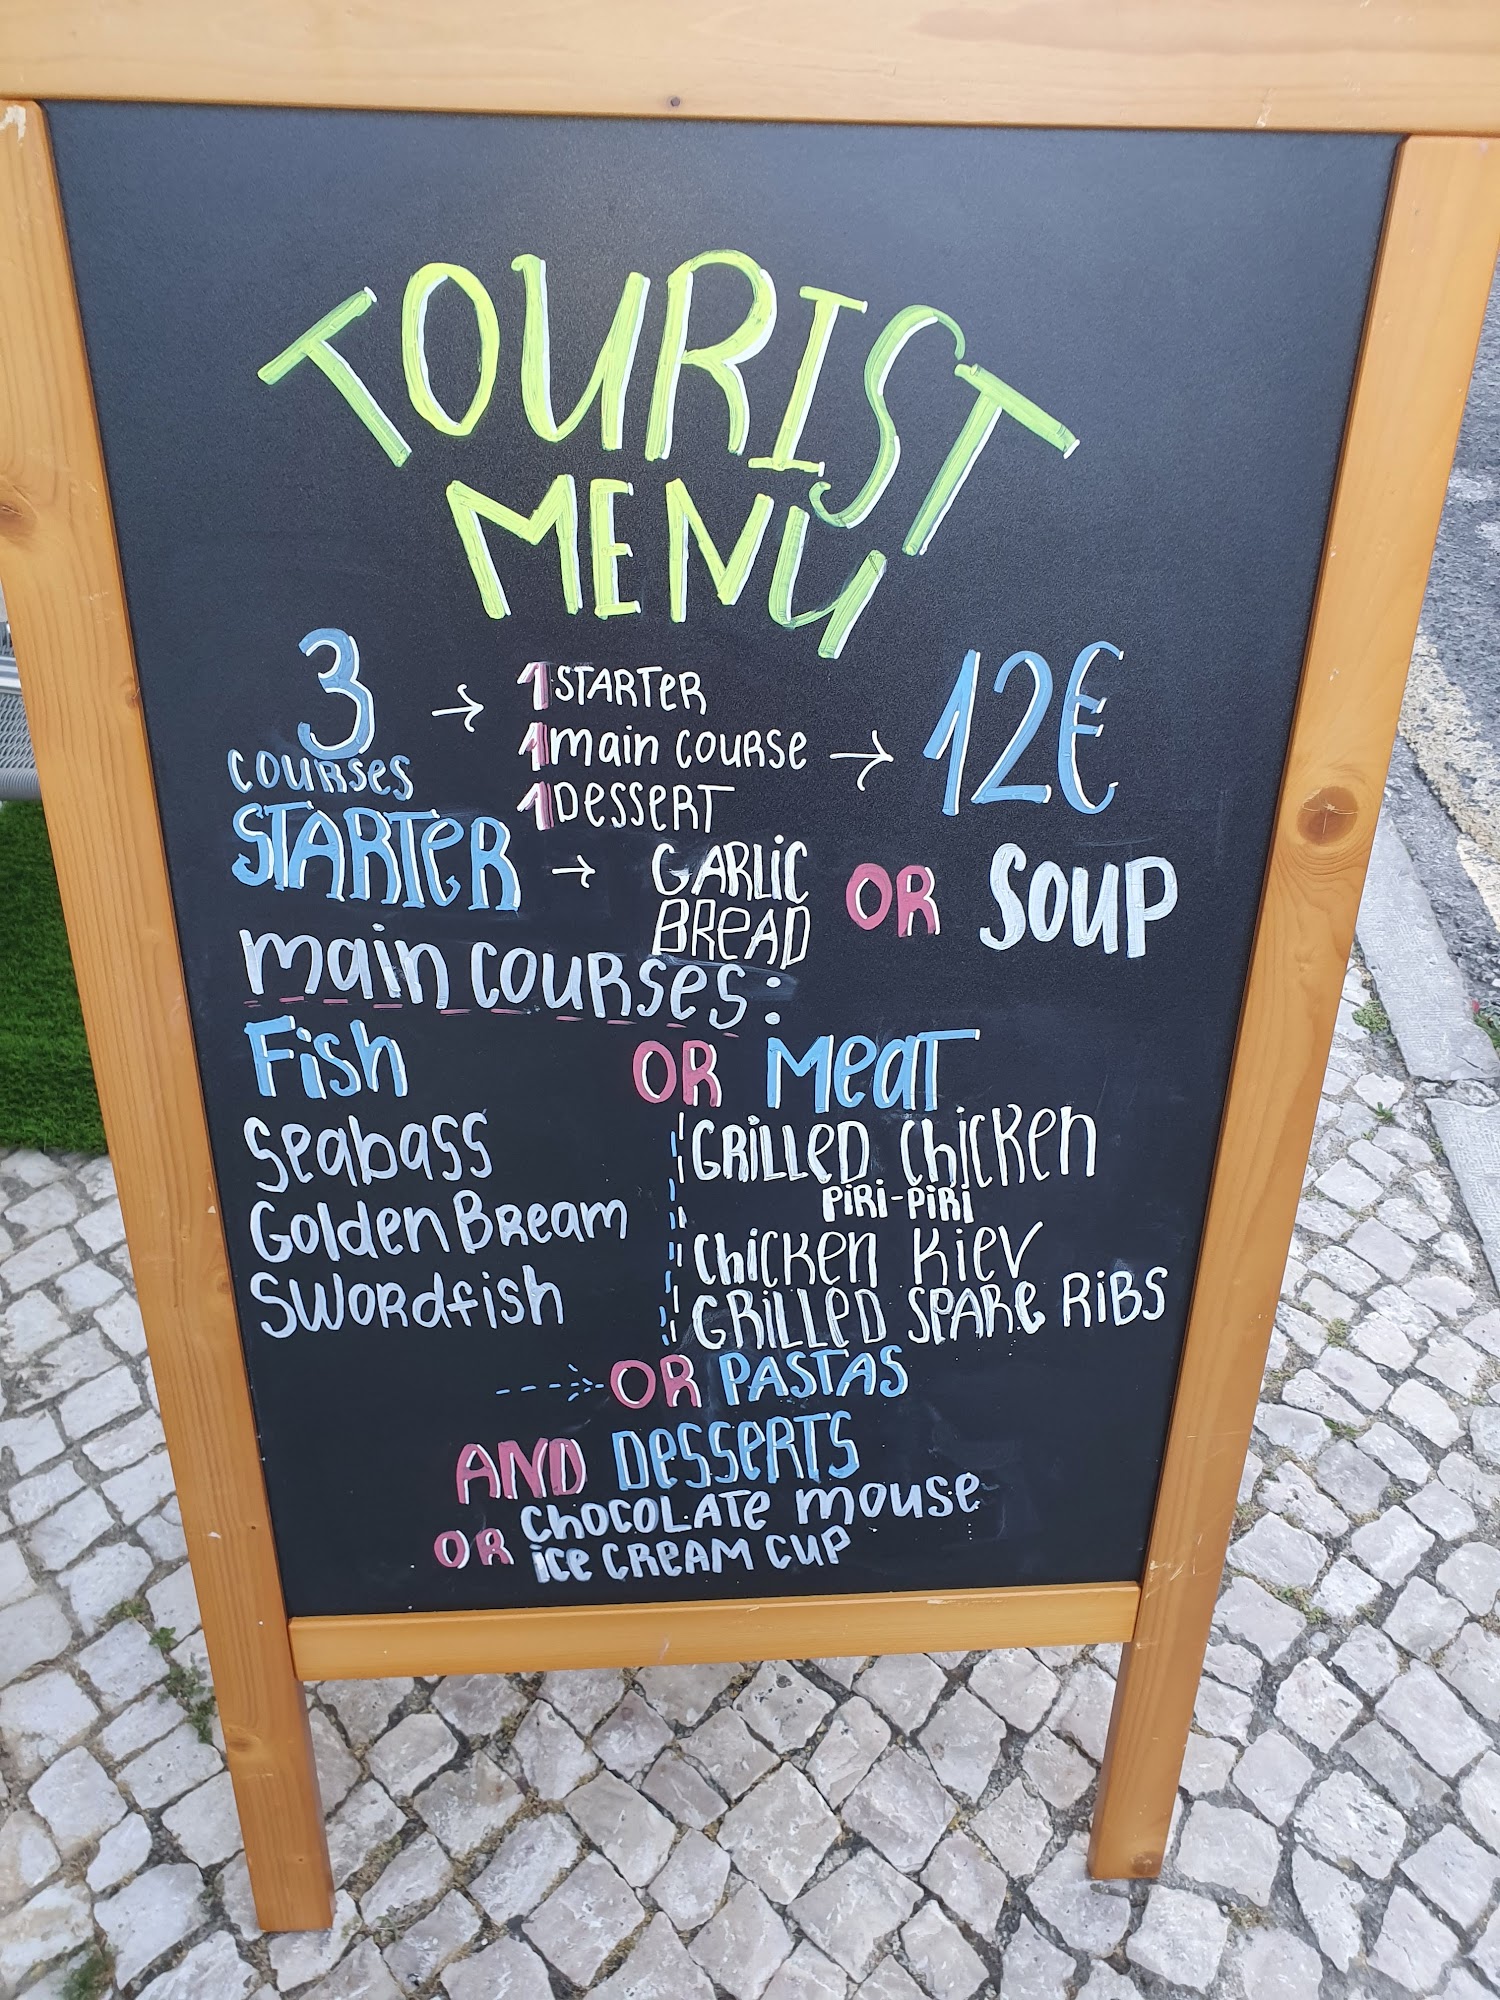 TOURIST
MENU
3 COURSES → 1 STARTER
1 main course → 12€
1 Dessert
STARTER → GARLIC BREAD OR SOUP
main courses:
Fish OR Meat
Seabass
Golden Bream
Swordfish
GRILLED Chicken
PiRi-PiRi
Chicken Kiev
GRILLED SPARE RiBS
OR PASTAS
AND Desserts
Chocolate mouse
OR ice cream cup